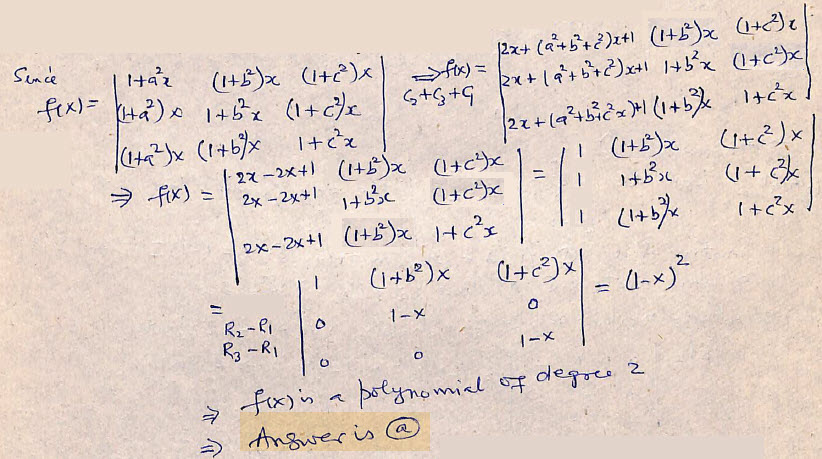 Since
f(x) = | 1+a²x (1+b²)x (1+c²)x |
| (1+a²)x 1+b²x (1+c²)x |
| (1+a²)x (1+b²)x 1+c²x |
⇒ f(x) = | 2x+(a²+b²+c²)x+1 (1+b²)x (1+c²)x |
C₂+C₃+C₁ | 2x+(a²+b²+c²)x+1 1+b²x (1+c²)x |
| 2x+(a²+b²+c²x)+1 (1+b²)x 1+c²x |
⇒ f(x) = | 2x-2x+1 (1+b²)x (1+c²)x |
| 2x-2x+1 1+b²x (1+c²)x |
| 2x-2x+1 (1+b²)x 1+c²x |
= | 1 (1+b²)x (1+c²)x |
| 1 1+b²x (1+c²)x |
| 1 (1+b²)x 1+c²x |
= | 1 (1+b²)x (1+c²)x | = (1-x)²
R₂-R₁ | 0 1-x 0 |
R₃-R₁ | 0 0 1-x |
⇒ f(x) is a polynomial of degree 2
⇒ Answer is ⓐ